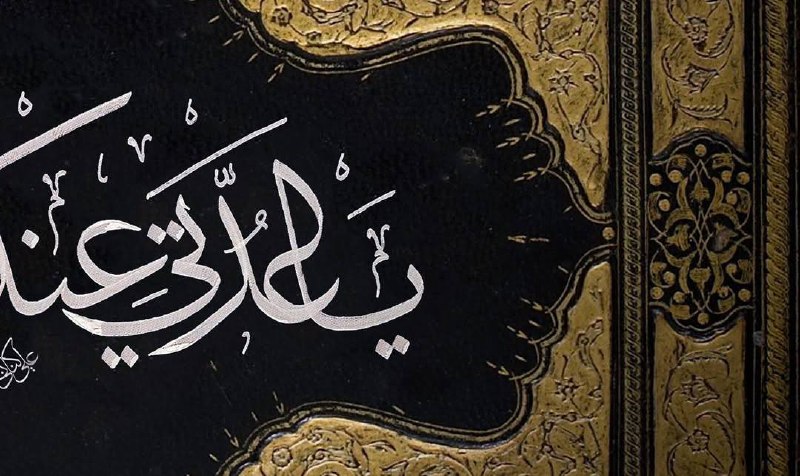 يَا عُدَّتِي عِند